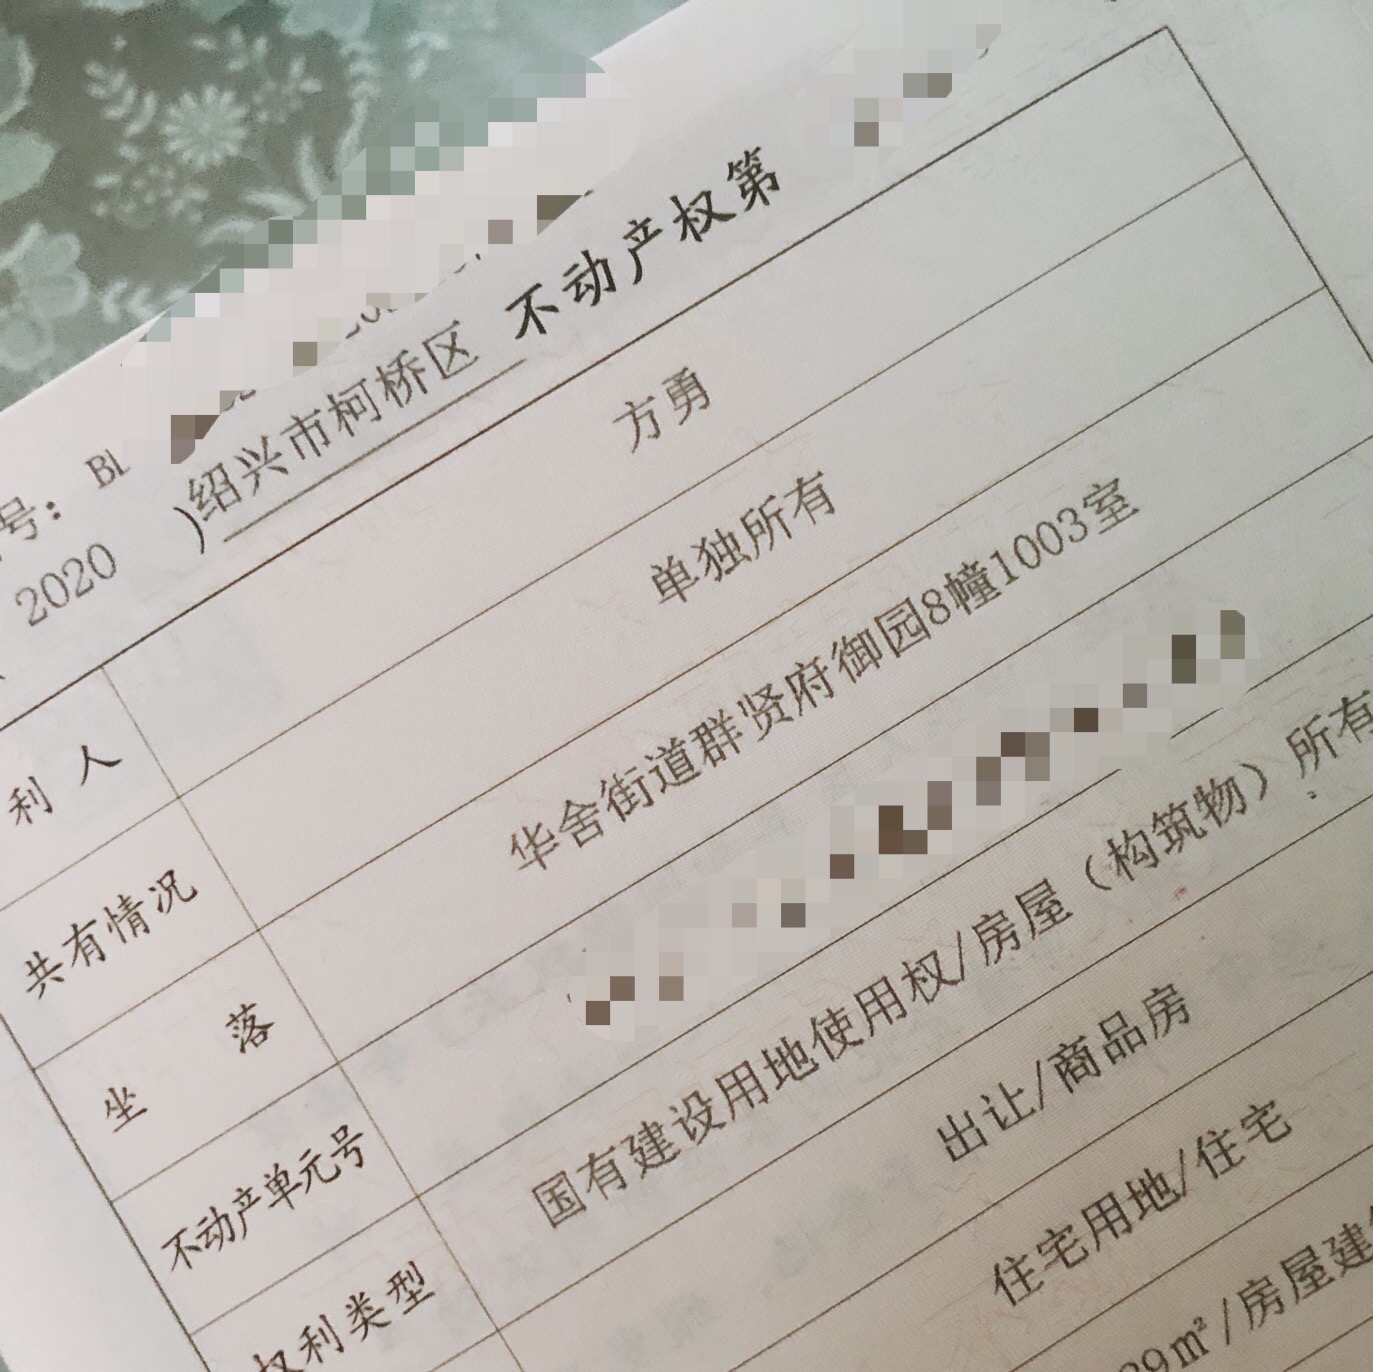 号：BL
2020 )绍兴市柯桥区 不动产权第
利 人 方勇
共有情况 单独所有
坐 落 华舍街道群贤府御园8幢1003室
不动产单元号
权利类型 国有建设用地使用权/房屋（构筑物）所有
出让/商品房
住宅用地/住宅
39m²/房屋建